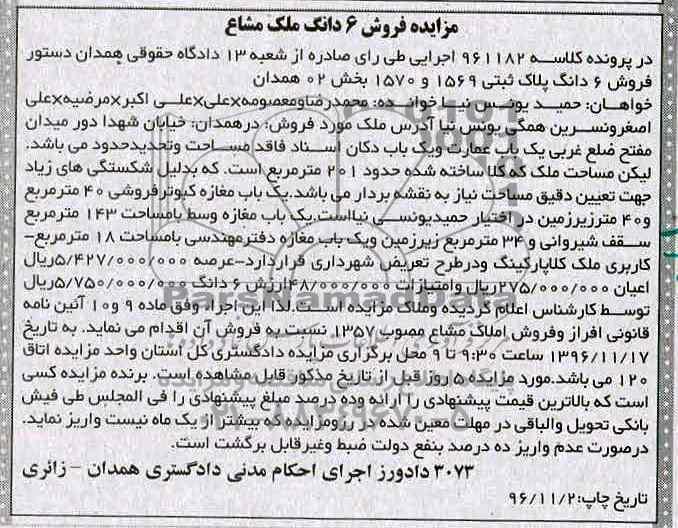 مزایده فروش ۶ دانگ ملک مشاع
در پرونده کلاسه ۹۶۱۱۸۲ اجرایی طی رای صادره از شعبه ۱۳ دادگاه حقوقی همدان دستور
فروش ۶ دانگ پلاک ثبتی ۱۵۶۹ و ۱۵۷۰ بخش ۰۲ همدان
خواهان: حمید یونس نیا خوانده: محمدرضاومعصومه×علی×علی اکبر×مرضیه×علی
اصغرونسرین همگی یونس نیا آدرس ملک مورد فروش: درهمدان: خیابان شهدا دور میدان
مفتح ضلع غربی یک باب عمارت ویک باب دکان اسناد فاقد مساحت وتحدیدحدود می باشد.
لیکن مساحت ملک که کلا ساخته شده حدود ۲۰۱ مترمربع است. که بدلیل شکستگی های زیاد
جهت تعیین دقیق مساحت نیاز به نقشه بردار می باشد.یک باب مغازه کبوترفروشی ۴۰ مترمربع
و۴۰ مترزیرزمین در اختیار حمیدیونسی نیااست.یک باب مغازه وسط بامساحت ۱۴۳ مترمربع
سقف شیروانی و ۳۴ مترمربع زیرزمین ویک باب مغازه دفترمهندسی بامساحت ۱۸ مترمربع-
کاربری ملک کلاپارکینگ ودرطرح تعریض شهرداری قراردارد-عرصه ۵/۴۲۷/۰۰۰/۰۰۰ریال
اعیان ۲۷۵/۰۰۰/۰۰۰ریال وامتیازات ۴۸/۰۰۰/۰۰۰ارزش ۶ دانگ ۵/۷۵۰/۰۰۰/۰۰۰ریال
توسط کارشناس اعلام گردیده وملاک مزایده است.لذا این اجرا وفق ماده ۹ و۱۰ آئین نامه
قانونی افراز وفروش املاک مشاع مصوب ۱۳۵۷ نسبت به فروش آن اقدام می نماید. به تاریخ
۱۳۹۶/۱۱/۱۷ ساعت ۹:۳۰ تا ۹ محل برگزاری مزایده دادگستری کل استان واحد مزایده اتاق
۱۲۰ می باشد.مورد مزایده ۵ روز قبل از تاریخ مذکور قابل مشاهده است. برنده مزایده کسی
است که بالاترین قیمت پیشنهادی را ارائه وده درصد مبلغ پیشنهادی را فی المجلس طی فیش
بانکی تحویل والباقی در مهلت معین شده در رزومزایده که بیشتر از یک ماه نیست واریز نماید.
درصورت عدم واریز ده درصد بنفع دولت ضبط وغیرقابل برگشت است.
۳۰۷۳ دادورز اجرای احکام مدنی دادگستری همدان - زائری
تاریخ چاپ:۹۶/۱۱/۲
ParsNamadData